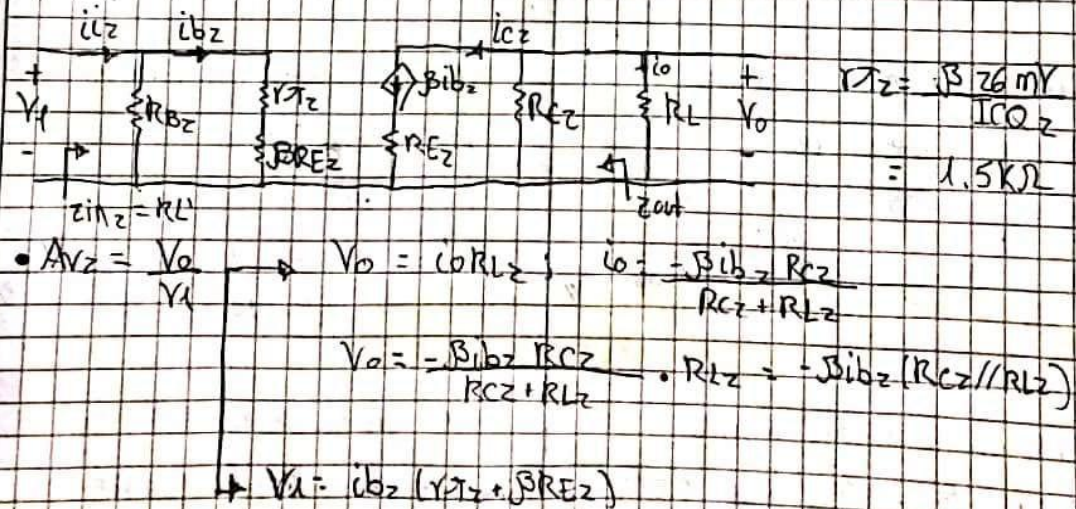 ii2 ib2 ic2
+ V1 - RB2 rπ2 βRE2 βib2 RE2 RC2 io RL + Vo - rπ2 = β 26 mV / ICQ2
= 1.5KΩ
zin2 = RL' zout
• Av2 = Vo / V1 → Vo = ioRL2 ; io = -βib2 RC2 / RC2 + RL2
Vo = -βib2 RC2 / RC2 + RL2 . RL2 = -βib2 (RC2//RL2)
→ V1 = ib2 (rπ2 + βRE2)